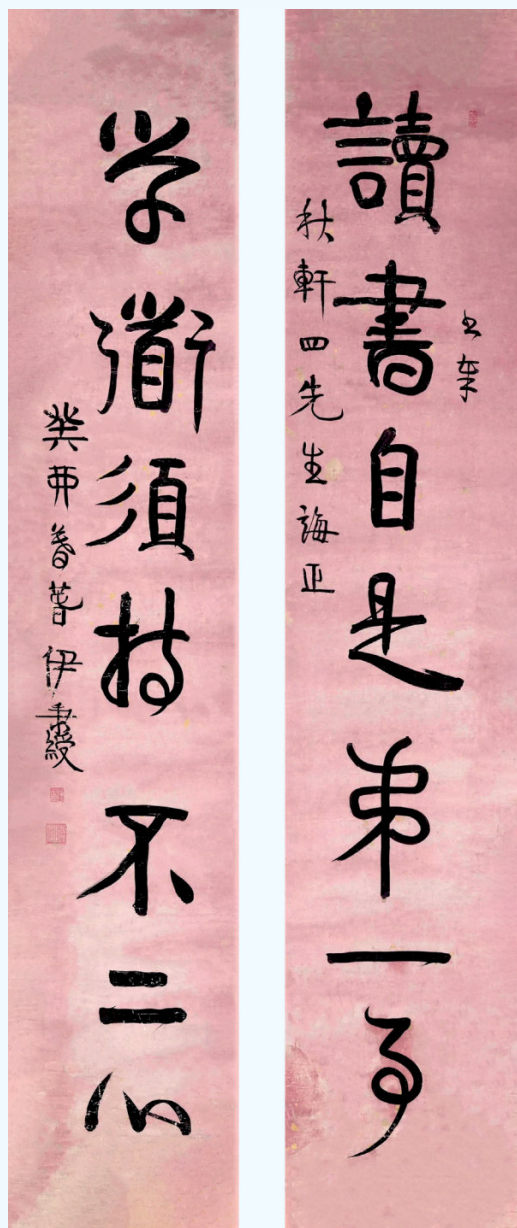 书奉
讀書自是弟一事
秋軒四先生誨正
学衜須持不二心
癸酉春暮伊秉綬